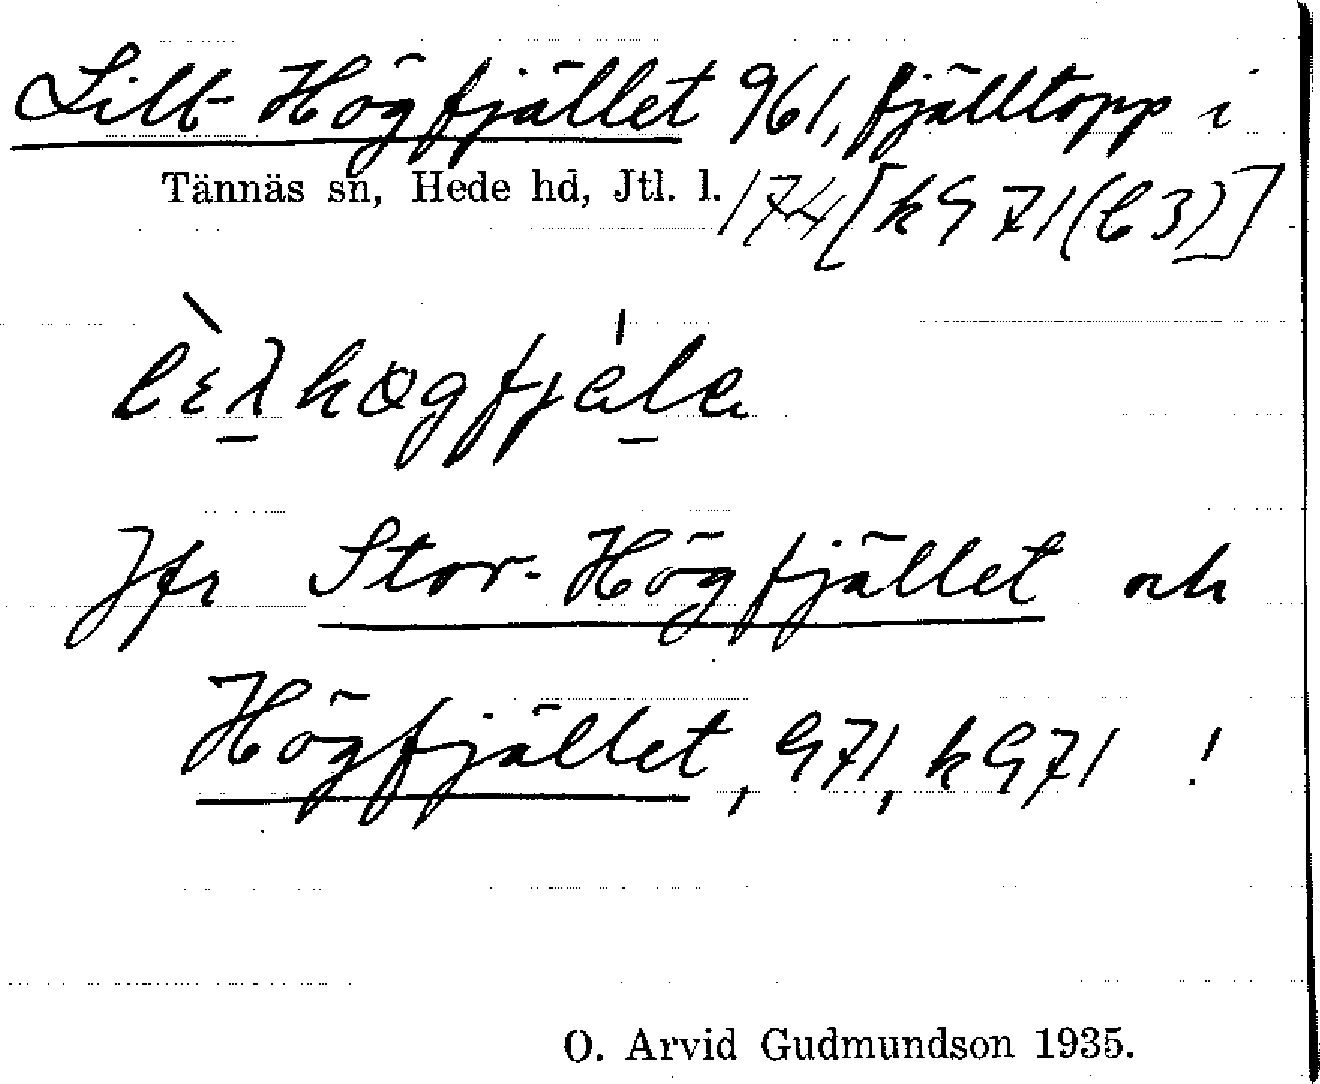 Lill-Högfjället 961, fjälltopp i
Tännäs sn, Hede hd, Jtl. l. 174 [k G 71 (C3)]
Jfr Stor-Högfjället och
Högfjället, G71, kG71 !
O. Arvid Gudmundson 1935.